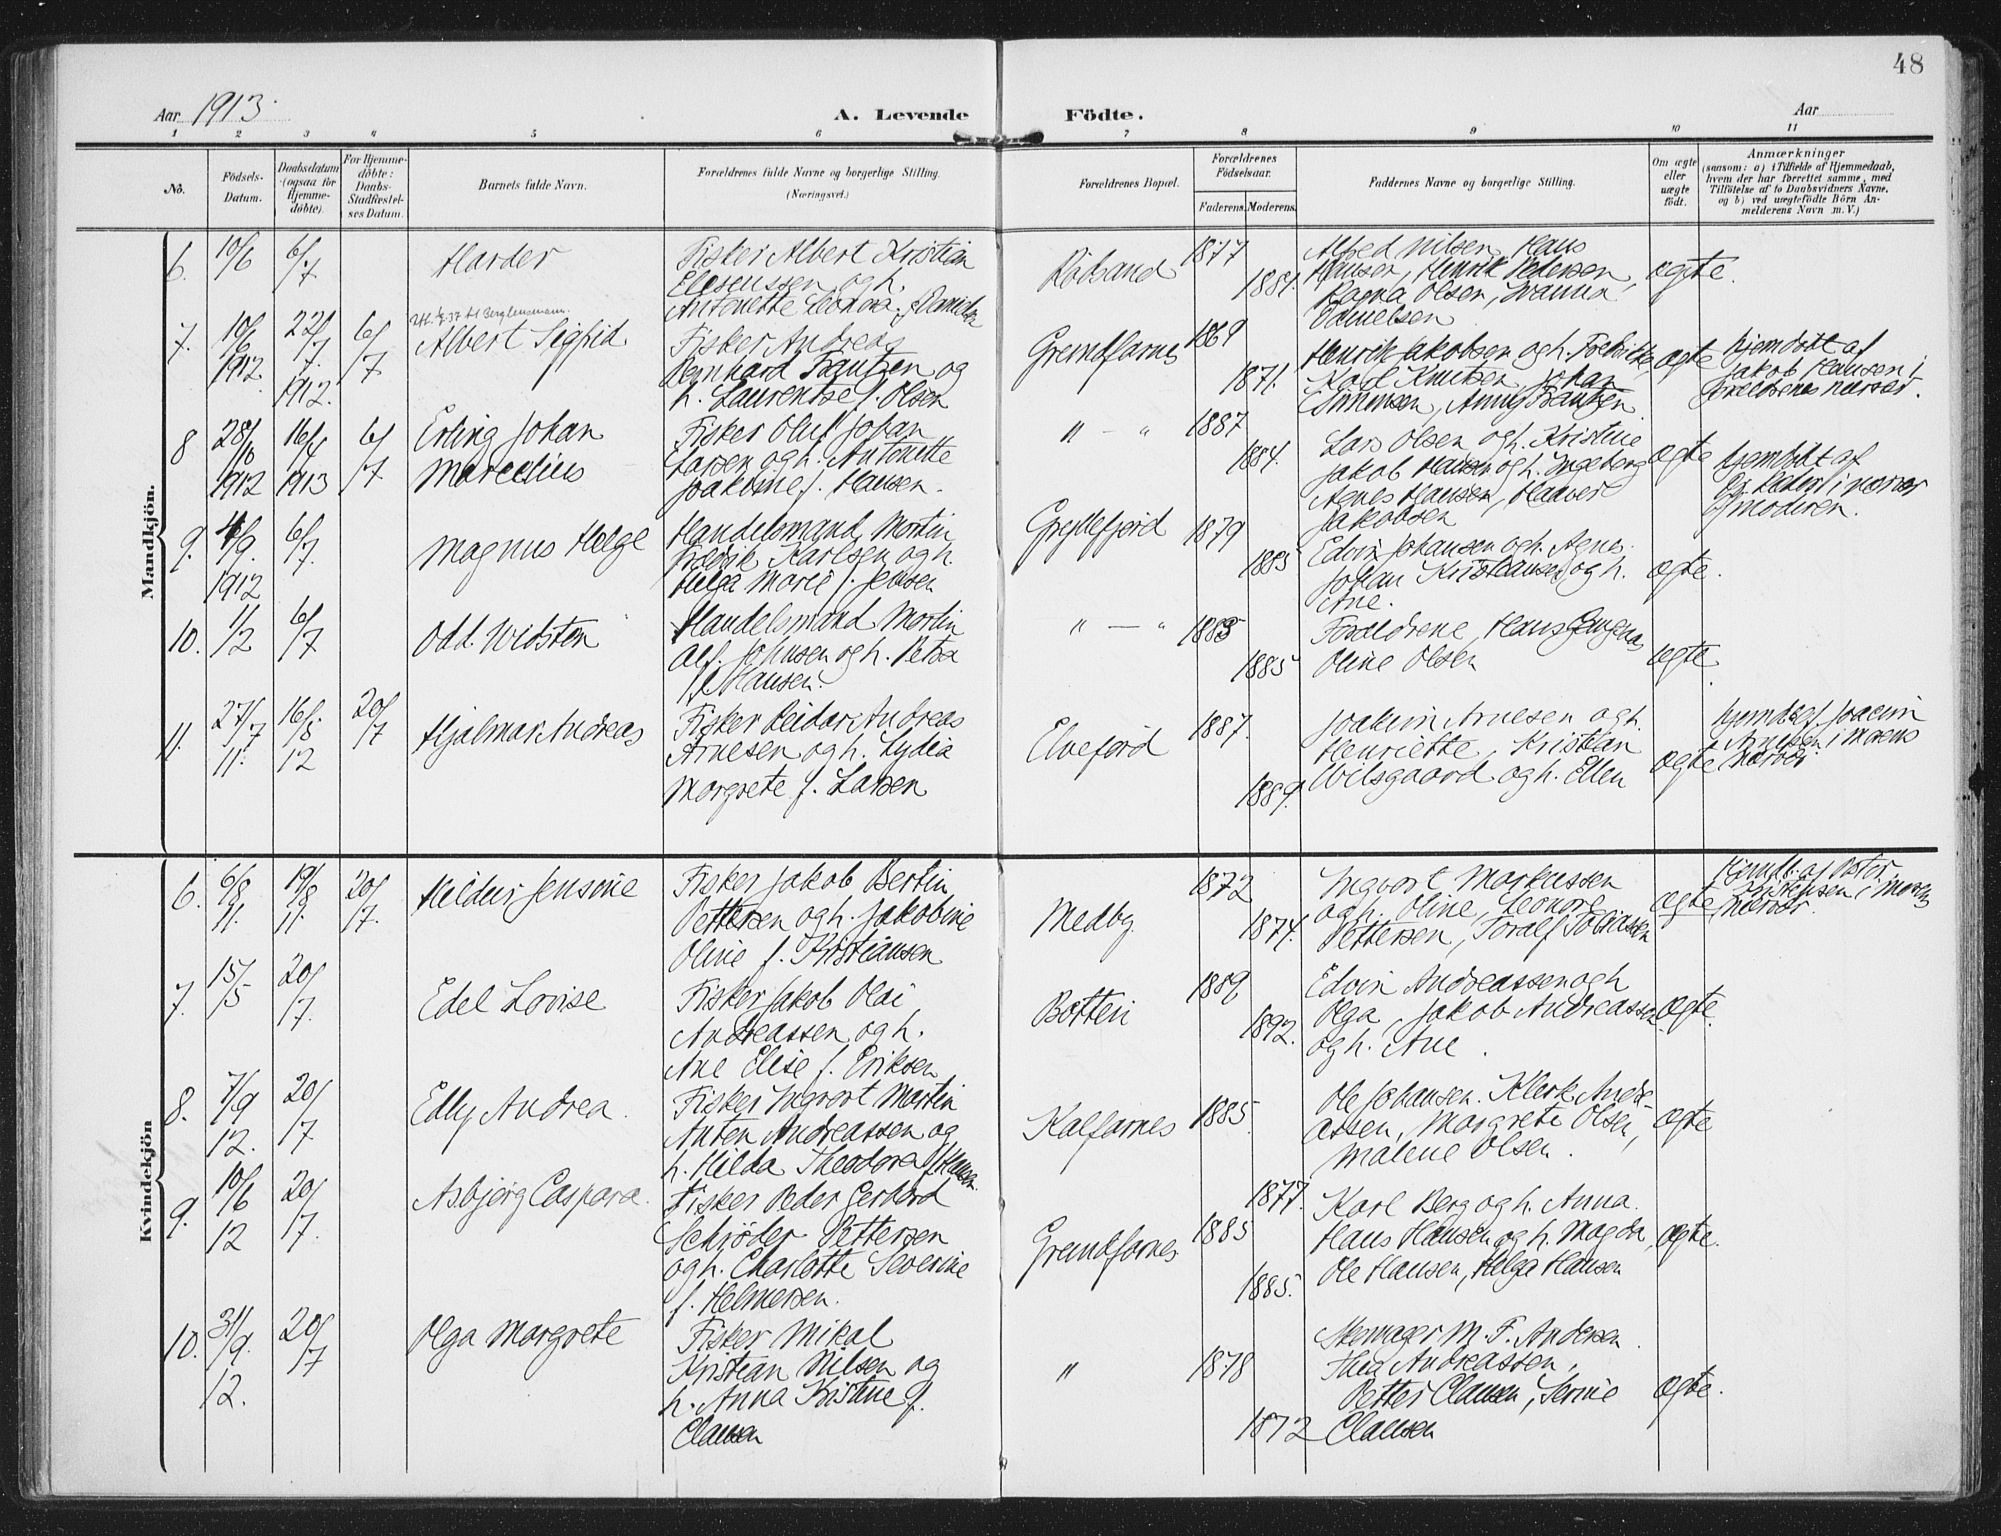 48
Aar 1913.
A. Levende Födte.
Aar
1 2 3 4 5 6 7 8 9 10 11
No.
Födsels-
Datum.
Daabsdatum
(ogsaa for
Hjemme-
döbte).
For Hjemme-
döbte:
Daabs-
Stadfæstel-
ses Datum.
Barnets fulde Navn.
Forældrenes fulde Navne og borgerlige Stilling.
(Næringsvei.)
Forældrenes Bopæl.
Forældrenes
Födselsaar.
Faderens.
Moderens.
Faddernes Navne og borgerlige Stilling.
Om ægte
eller
uægte
födt.
Anmærkninger
(saasom: a) i Tilfælde af Hjemmedaab,
hvem der har forrettet samme, med
Tilföielse af to Daabsvidners Navne,
og b) ved uægtefödte Börn An-
melderens Navn m. V.)
Mandkjön.
6. 10/6 6/7 Harder
Fisker Albert Kristian
Elesenssen og h.
Antonette f. Danielsen
1877
1881.
Alfred Nilsen, Hans
Hansen, Henrik Pedersen,
Ragna Olsen,
Danielsen
ægte.
7. 10/6 1912 22/7 1912. 6/7
Albert Sigfrid
Fisker Andreas
Bernhard Frantzen og
h. Laurentse f. Olsen
1869
1871.
Henrik Jakobsen og h.
Karl Knutsen, Johan
Simonsen, Anny Frantzen
ægte
hjemdøbt af
Jakob Hansen i
forældrenes nærvær.
8 1912 1913 6/7
Erling Johan
Marcelius
Fisker Oluf Johan
Larsen og h. Antonette
Jakobine f. Hansen.
" — "
1887
1884.
Lars Olsen og h. Kristine
Jakob Hansen og h. Ingeborg
Agnes Hansen,
Jakobsen
ægte
hjemdøbt af
i nærvær
af moderen.
9. 4/9. 1912 6/7.
Magnus Helge
Handelsmand Mortin
Fredrik Karlsen og h.
Helga Marie f. Jensen
Gryllefjord
1879
1885
Edvin Johansen og h. Agnes.
Johan Kristiansen og h.
Ane.
ægte.
10. 1/2 6/7
Odd. Widsten
Handelsmand Mortin
Alf. Johnsen og h. Petra
f. Hansen.
" — "
1883
1885
Forældrene, Hans
Oline Olsen
ægte.
11. 27/7 11. 16/8 12 20/7
Hjalmar Andreas
Fisker Reidar Andreas
Arnesen og h. Lydia
Margrete f. Larsen
Elvefjord
1887.
1889.
Joakim Arnesen og h.
Henriette, Kristian
Wilsgaard og h. Ellen
ægte
hjemdøbt af Joacim
Arnesen i morens
nærvær
Kvindekjön
6. 6/8 11. 19/8 11. 20/7.
Hildur Jensine
Fisker Jakob Bertin
Pettersen og h. Jakobine
Oline f. Kristiansen
Medby.
1872
1874.
Ingvart Markussen
og h. Oline, Leonore
Pettersen, Toralf Tobiassen
ægte
Hjemdb. af Peter.
Kristensen i morens
nærvær.
7. 15/5 20/7.
Edel Lovise
Fisker Jakob Olai
Andreassen og h.
Ane Elise f. Eriksen
Botten
1889
1892.
Edvin Andreassen og h
Olga, Jakob Andreassen
og h. Ane.
ægte.
8. 7/9 12. 20/7
Edly Andrea.
Fisker Ingvart Martin
Anton Andreassen og
h. Hilda Theodora f. Hansen.
Kalfarnes
1885.
Ole Johansen. Klerk Andre-
assen, Margrete Olsen,
Malene Olsen.
ægte
1877.
9. 10/6 12 20/7.
Asbjørg Caspara.
Fisker Peder Gerhard
Schrøder Pettersen
og h. Charlotte Severine
f. Helmersen.
Grundfarnes
1885
1885.
Karl Berg og h. Anna.
Hans Hansen og h. Magda,
Ole Hansen, Helga Hansen
ægte.
10. 31/9. 12. 20/7
Olga Margrete
Fisker Mikal
Kristian Nilsen og
h. Anna Kristine f.
Clausen
"
1878
1872
Skomager M. F. Andersen.
Thea Andreassen,
Petter Clausen, Serine
Clausen
ægte.